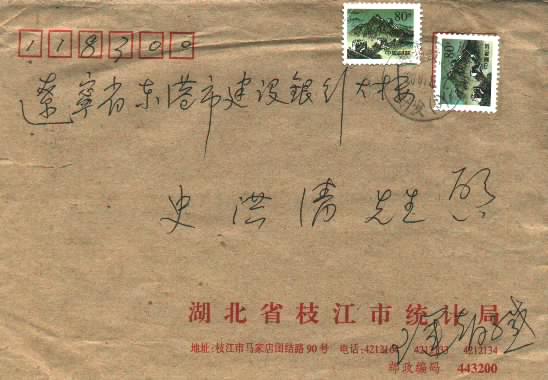 118300
80分
辽宁省东港市建设银行大楼
史洪清先生启
湖北省枝江市统计局
地址:枝江市马家店团结路90号 电话:4212164 4212133 4212134
邮政编码 443200